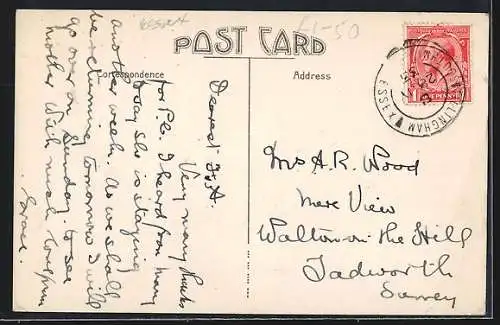 Essex
£1-50
POST CARD
Correspondence
Address
Dearest
Very many thanks
for P.C. I heard from Mary
today she is staying
another week. As we shall
be returning tomorrow I will
go over on Sunday to see
Mother With much love from
Grace.
Mrs A. R. Wood
Mere View
Walton-on-the-Hill
Tadworth
Surrey
ESSEX